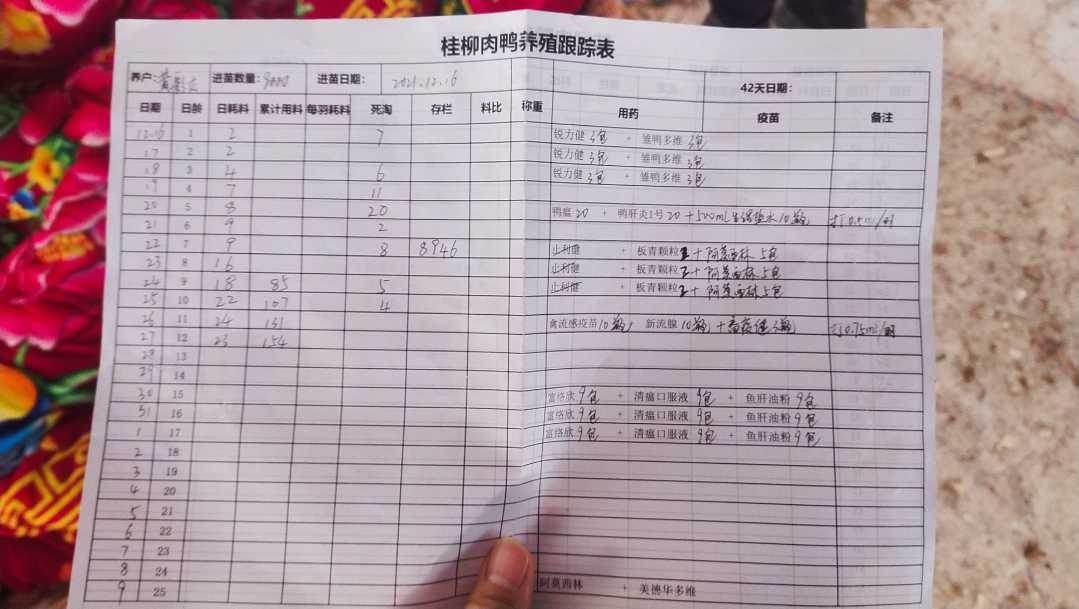 桂柳肉鸭养殖跟踪表
养户: 进苗数量: 9000 进苗日期: 2021.12.16 42天日期:
日期 日龄 日耗料 累计用料 每羽耗料 死淘 存栏 料比 称重 用药 疫苗 备注
12-16 1 2 7 锐力健 3包 + 雏鸭多维 3包
17 2 2 锐力健 3包 + 雏鸭多维 3包
18 3 4 6 锐力健 3包 + 雏鸭多维 3包
19 4 7 11
20 5 8 20 鸭瘟 20 + 鸭肝炎1号 20 + 500mL生理盐水 10瓶 打0.5ml/羽
21 6 9 2
22 7 9 8 8946 止利健 + 板青颗粒 2 + 阿莫西林 5包
23 8 16 止利健 + 板青颗粒 2 + 阿莫西林 5包
24 9 18 85 5 止利健 + 板青颗粒 2 + 阿莫西林 5包
25 10 22 107 4
26 11 24 131 禽流感疫苗 10瓶 新流腺 10瓶 + 3瓶 打0.75ml/羽
27 12 23 154
28 13
29 14
30 15 富络欣 9包 + 清瘟口服液 9包 + 鱼肝油粉 9包
31 16 富络欣 9包 + 清瘟口服液 9包 + 鱼肝油粉 9包
1 17 富络欣 9包 + 清瘟口服液 9包 + 鱼肝油粉 9包
2 18
3 19
4 20
5 21
6 22
7 23
8 24
9 25 阿莫西林 + 美德华多维